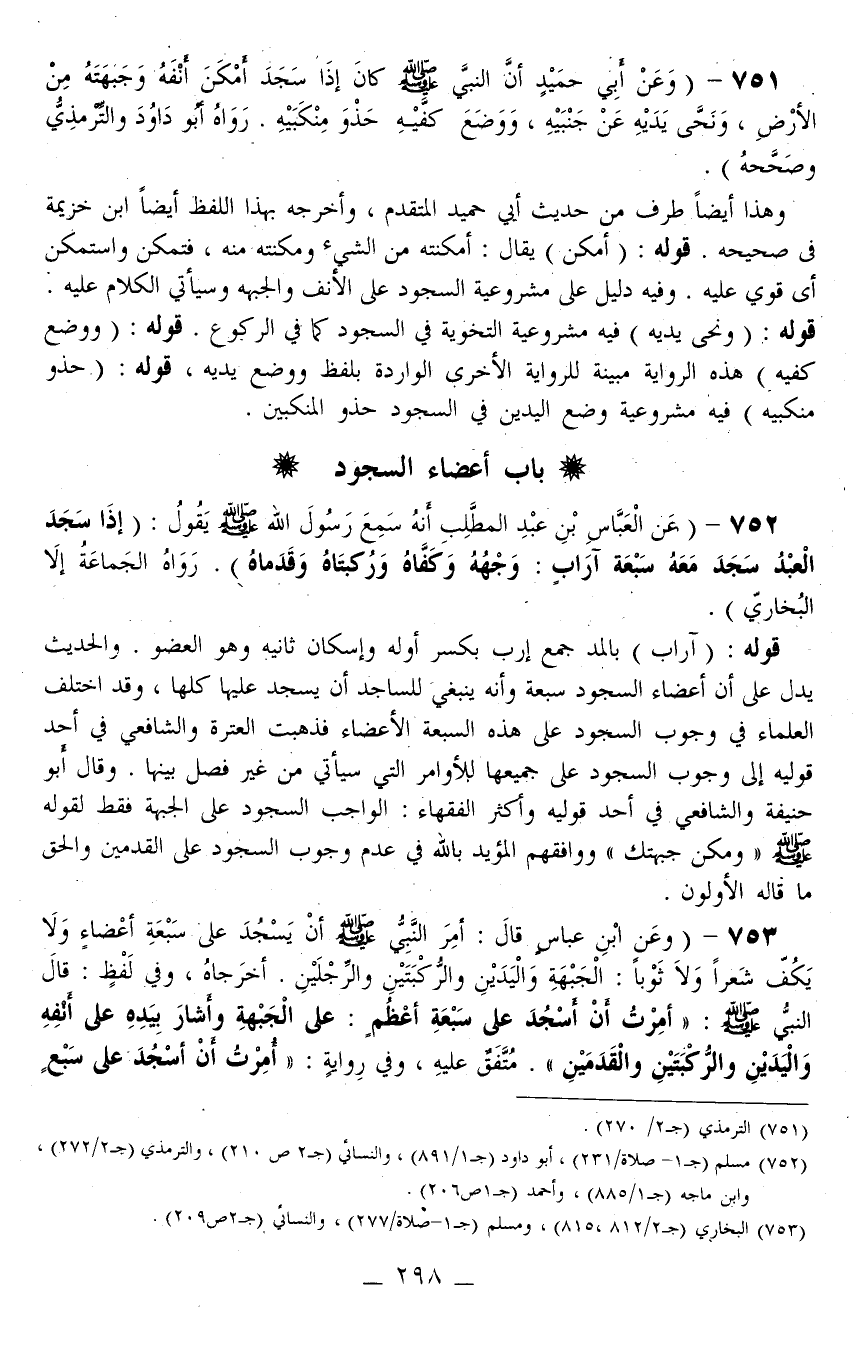 ٧٥١ – ( وَعَنْ أَبِي حميْدٍ أنَّ النبيَّ ﷺ كانَ إذَا سَجَدَ أَمْكَنَ أَنْفَهُ وَجَبهَتَهُ مِنْ
الأرْضِ ، وَنَحَّى يَدَيْهِ عَنْ جَنْبَيْهِ ، وَوَضَعَ كفَّيْهِ حَذْوَ مِنْكَبَيْهِ . رَوَاهُ أَبُو دَاوُدَ والتِّرمذِيُّ
وصَحَّحهُ ) .
وهذا أيضاً طرف من حديث أبي حميد المتقدم ، وأخرجه بهذا اللفظ أيضاً ابن خزيمة
فى صحيحه . قوله : ( أمكن ) يقال : أمكنته من الشيء ومكنته منه ، فتمكن واستمكن
أى قوي عليه . وفيه دليل على مشروعية السجود على الأنف والجبهه وسيأتي الكلام عليه .
قوله : ( ونحى يديه ) فيه مشروعية التخوية في السجود كما في الركوع . قوله : ( ووضع
كفيه ) هذه الرواية مبينة للرواية الأخرى الواردة بلفظ ووضع يديه ، قوله : ( حذو
منكبيه ) فيه مشروعية وضع اليدين في السجود حذو المنكبين .
باب أعضاء السجود
٧٥٢ – ( عَن الْعَبَّاسِ بْنِ عبْدِ المطَّلِبِ أَنهُ سَمِعَ رَسُولَ الله ﷺ يَقُولُ : ( إذَا سَجَدَ
الْعَبْدُ سَجَدَ مَعَهُ سَبْعَة آرَابٍ : وَجْهُهُ وَكَفَّاهُ وَرُكبتَاهُ وَقَدَماهُ ) . رَوَاهُ الجماعَةُ إلَّا
البُخاريّ ) .
قوله : ( آراب ) بالمد جمع إرب بكسر أوله وإسكان ثانيه وهو العضو . والحديث
يدل على أن أعضاء السجود سبعة وأنه ينبغي للساجد أن يسجد عليها كلها ، وقد اختلف
العلماء في وجوب السجود على هذه السبعة الأعضاء فذهبت العترة والشافعي في أحد
قوليه إلى وجوب السجود على جميعها للأوامر التي سيأتي من غير فصل بينها . وقال أبو
حنيفة والشافعي في أحد قوليه وأكثر الفقهاء : الواجب السجود على الجبهة فقط لقوله
ﷺ « ومكن جبهتك » ووافقهم المؤيد بالله في عدم وجوب السجود على القدمين والحق
ما قاله الأولون .
٧٥٣ – ( وعَن ابْنِ عباسٍ قالَ : أمِرَ النَّبِيُّ ﷺ أنْ يَسْجُدَ على سَبْعَةِ أعْضاءٍ وَلَا
يَكُفّ شَعراً وَلاَ ثَوْباً : الْجَبْهَةِ وَالْيَدَيْنِ والرُّكْبَتَيْنِ والرِّجْلَيْنِ . أخرَجاهُ ، وفي لَفْظٍ : قالَ
النبيُّ ﷺ : « أمِرْتُ أَنْ أَسْجُدَ على سَبْعَةِ أَعْظُمٍ : على الْجَبْهةِ وأَشارَ بِيَدهِ على أَنْفِهِ
وَالْيَدَيْنِ والرُّكْبَتَيْنِ والْقَدَمَيْنِ » . مُتَّفَقٌ عليهِ ، وفي رِوايةٍ : « أُمِرْتُ أَنْ أسْجُدَ على سَبْعٍ
(٧٥١) الترمذي (جـ٢/ ٢٧٠) .
(٧٥٢) مسلم (جـ١– صلاة/٢٣١) ، أبو داود (جـ٨٩١/١) ، والنسائي (جـ٢ ص ٢١٠) ، والترمذي (جـ٢٧٢/٢) ،
وابن ماجه (جـ٨٨٥/١) ، وأحمد (جـ١ص٢٠٦) .
(٧٥٣) البخاري (جـ٨١٢/٢ ،٨١٥) ، ومسلم (جـ١–صلاة/٢٧٧) ، والنسائي (جـ٢ص٢٠٩) .
— ٢٩٨ —